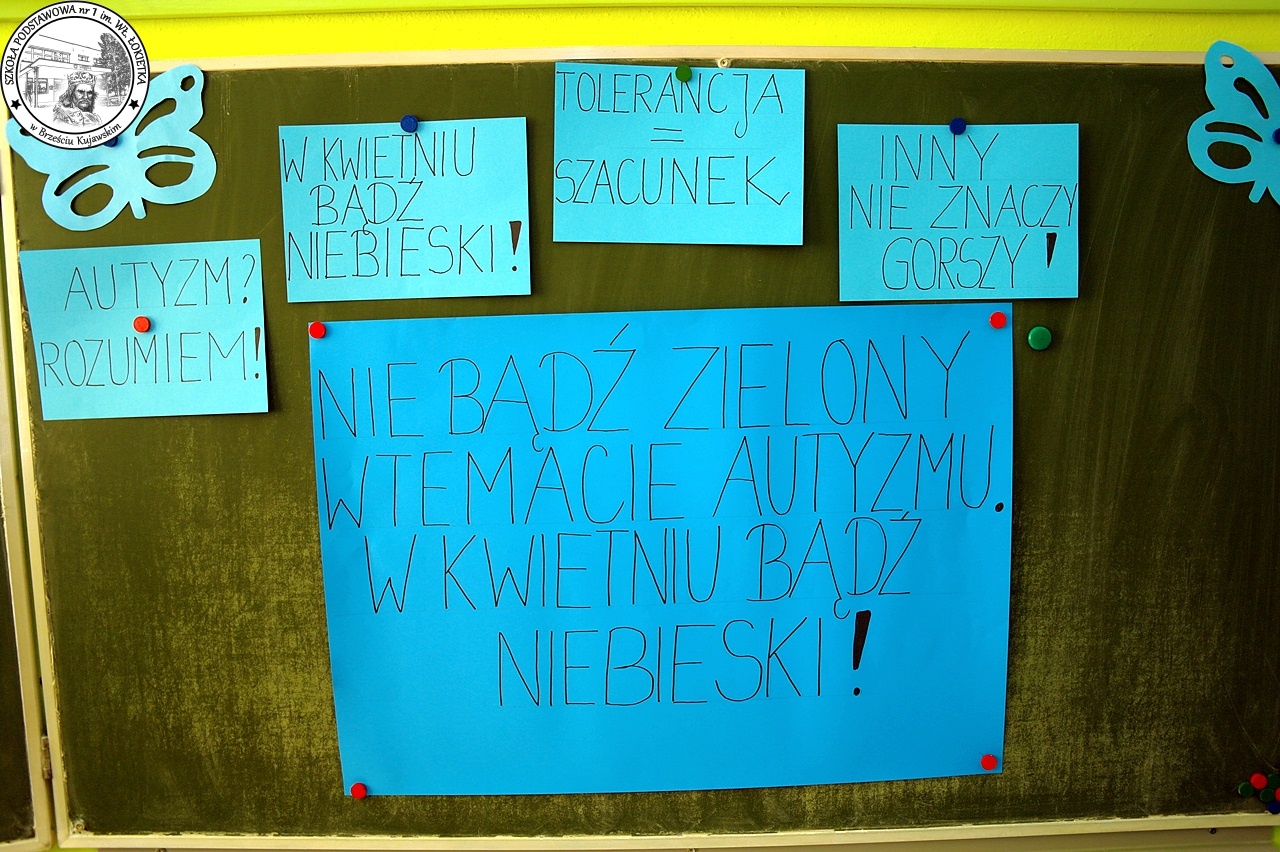 SZKOŁA PODSTAWOWA nr 1 im. WŁ. ŁOKIETKA
w Brześciu Kujawskim
AUTYZM?
ROZUMIEM!
W KWIETNIU
BĄDŹ
NIEBIESKI!
TOLERANCJA
=
SZACUNEK
INNY
NIE ZNACZY
GORSZY!
NIE BĄDŹ ZIELONY
W TEMACIE AUTYZMU.
W KWIETNIU BĄDŹ
NIEBIESKI!